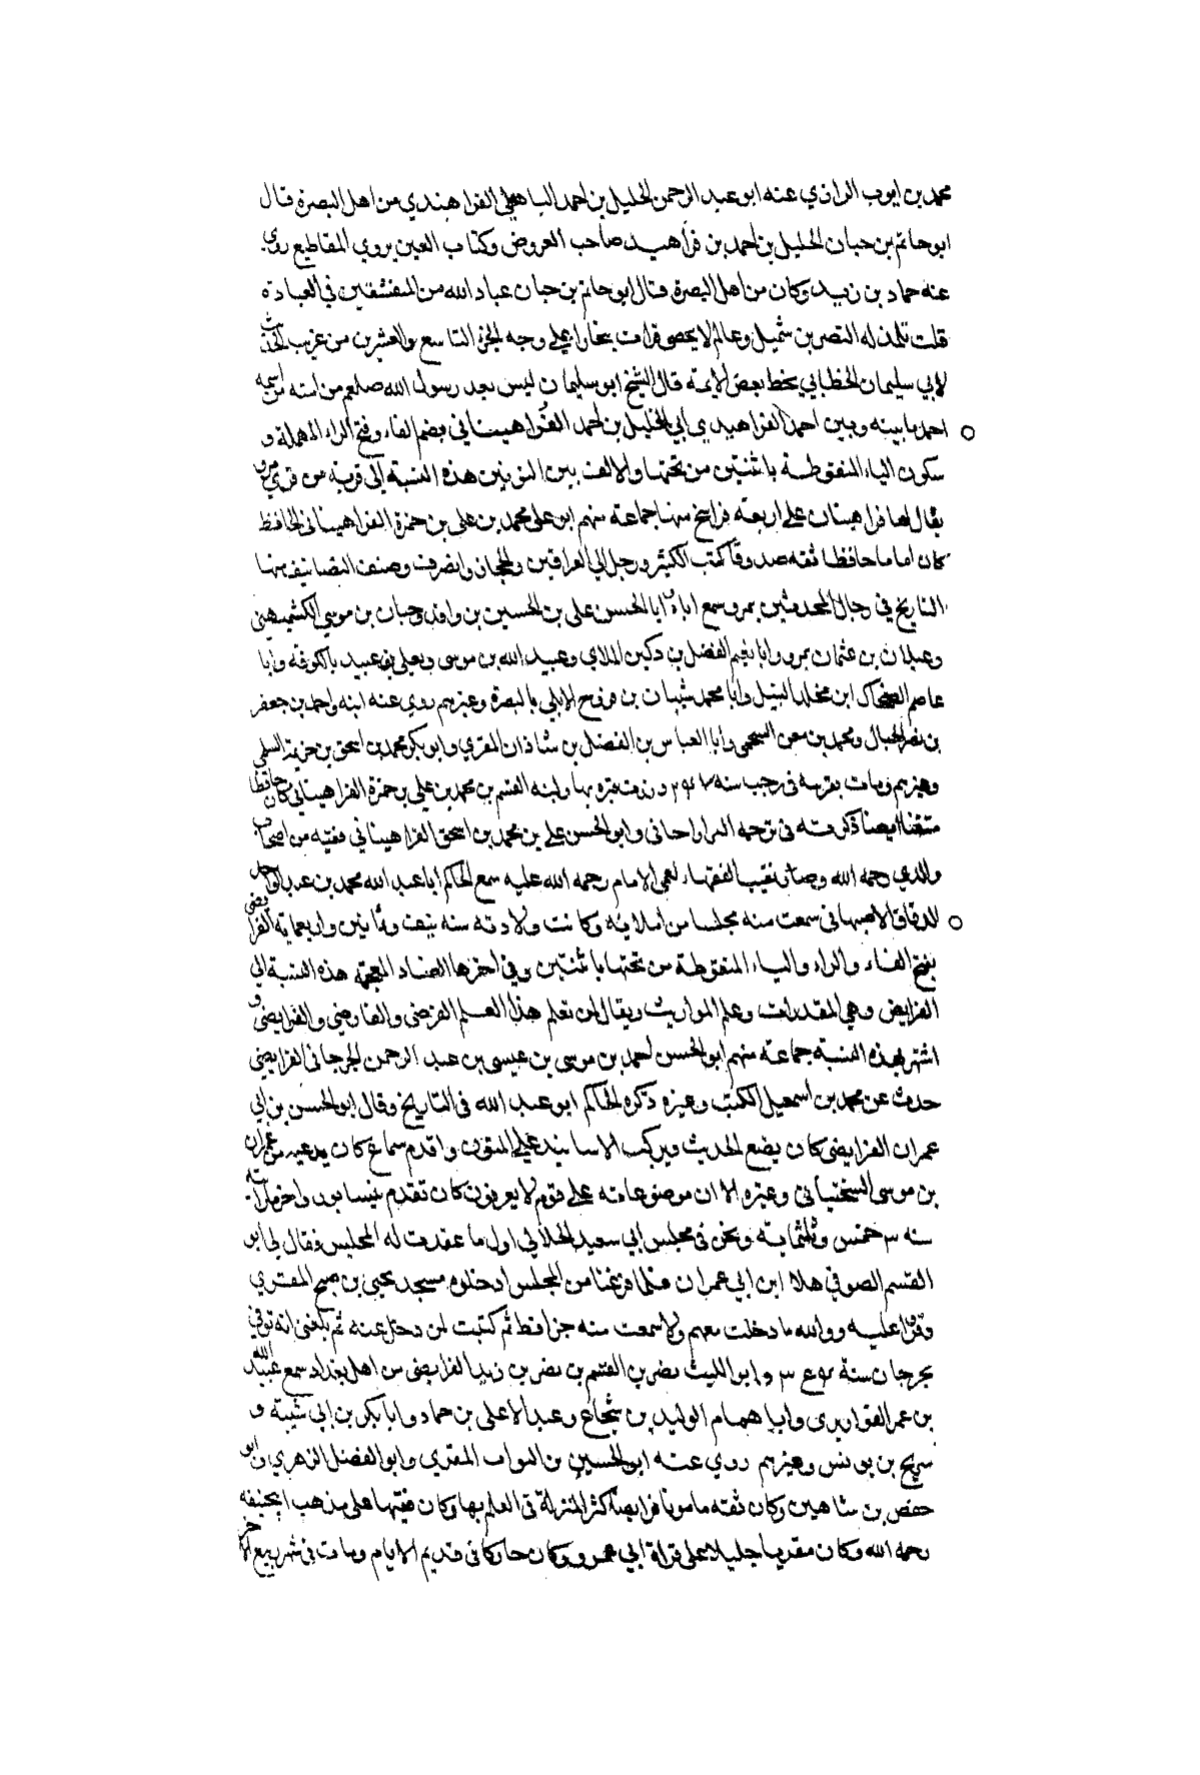 محمد بن ايوب الرازي عنه ابو عبد الرحمن الخليل بن احمد الباهلي الفراهيدي من اهل البصرة قال
ابو حاتم بن حبان الخليل بن احمد بن فراهيد صاحب العروض وكتاب العين يروي المقاطيع روى
عنه حماد بن زيد وكان من اهل البصرة قال ابو حاتم بن حبان عباد الله من المتقشفين في العبادة
قلت تلمذ له النضر بن شميل وعالم لا يحصى قرات ببخارا على وجه الجزء التاسع والعشرين من غريب الحديث
لابي سليمان الخطابي بخط بعض الايمة قال الشيخ ابو سليمان ليس بعد رسول الله صلعم من اسمه
احمد ما بينه وبين احمد الفراهيدي ابي الخليل بن احمد الفراهيناني بضم الفاء وفتح الراء المهملة و
سكون الياء المنقوطة باثنتين من تحتها والالف بين النونين هذه النسبة الى قرية من قرى مرو
يقال لها فراهينان على اربعة فراسخ منها جماعة منهم ابو على محمد بن على بن حمزة الفراهيناني الحافظ
كان اماما حافظا ثقه صدوقا كتب الكثير ورحل الى العراقين والحجاز وانصرف وصنف التصانيف منها
التاريخ في رجال المحدثين بمرو سمع اباه وابا الحسن على بن الحسين بن واقد وحبان بن موسى الكشميهني
وعبدان بن عثمان بمرو وابا نعيم الفضل بن دكين الملاي وعبيد الله بن موسى ويعلى بن عبيد بالكوفة وابا
عاصم الضحاك ابن مخلد النبيل وابا محمد شيبان بن فروخ الابلي بالبصرة وغيرهم روى عنه ابنه واحمد بن جعفر
بن نصر الجمال ومحمد بن معن السحمى وابا العباس بن الفضل بن شاذان المقري وابو بكر محمد بن اسحق بن خزيمة السلمي
وغيرهم ومات بقريته في رجب سنه وزرت قبره بها وابنه القسم بن محمد بن على بن حمزة الفراهيناني كان حافظا
متقنا ايضا ذكرته في ترجمة وابو الحسن على بن محمد بن اسحق الفراهيناني فقيه من اصحاب
والدي رحمه الله وصار نقيب الفقهاء لعمى الامام رحمه الله عليه سمع الحاكم ابا عبد الله محمد بن عبد الواحد
الدقاق الاصبهاني سمعت منه مجلسا من املايه وكانت ولادته سنه نيف وثمانين واربعماية الفرايضى
بفتح الفاء والراء والياء المنقوطة من تحتها باثنتين وفي اخرها الضاد المعجمة هذه النسبة الى
الفرايض وهي المقدرات وعلم المواريث ويقال لمن تعلم هذا العلم الفرضى والفارضي والفرايضى و
اشتهر بهذه النسبة جماعة منهم ابو الحسن احمد بن موسى بن عيسى بن عبد الرحمن الجرجاني الفرايضي
حدث عن محمد بن اسمعيل المكتب وغيره ذكره الحاكم ابو عبد الله في التاريخ وقال ابو الحسن بن ابي
عمران الفرايضى كان يضع الحديث ويركب الاسانيد على المتون واقدم سماع كان يدعيه من عمران
بن موسى السختياني وغيره الا ان موضوعاته على قوم لا يعرفون كان تقدم نيسابور واخر ما راته
سنه خمس وثلثماية ونحن في مجلس ابي سعيد الخلالي اول ما عقدت له المجلس فقال لي ابو
القسم الصوفي هذا ابن ابي عمران فلما فرغنا من المجلس ادخلوه مسجد يحيى بن صبح المقري
وقرا عليه ووالله ما دخلت معهم ولا سمعت منه جزا قط ثم كتبت لمن دخل عنه ثم بلغني انه توفى
بجرجان سنة وابو الليث نصر بن القسم بن نصر بن زيد الفرايضى من اهل بغداد سمع عبيد الله
بن عمر القواريرى وابا همام الوليد بن شجاع وعبد الاعلى بن حماد وابا بكر بن ابي شيبة و
سريج بن يونس وغيرهم روي عنه ابو الحسين بن البواب المقري وابو الفضل الزهري وابو
حفص بن شاهين وكان ثقه مامونا فرايضيا كثر المنزلة في العلم بها وكان فقيها على مذهب ابي حنيفه
رحمه الله وكان مقريا جليلا على قراة ابي عمرو وكان في قديم الايام ومات في شهر ربيع الاخر